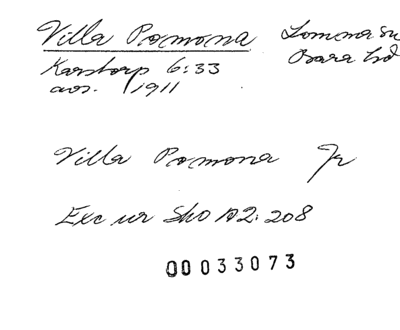 Villa Pomona Lomma sn
Karstorp 6:33 Bara hd
avs. 1911
Villa Pomona Jr
Exc ur ShO A2:208
00033073